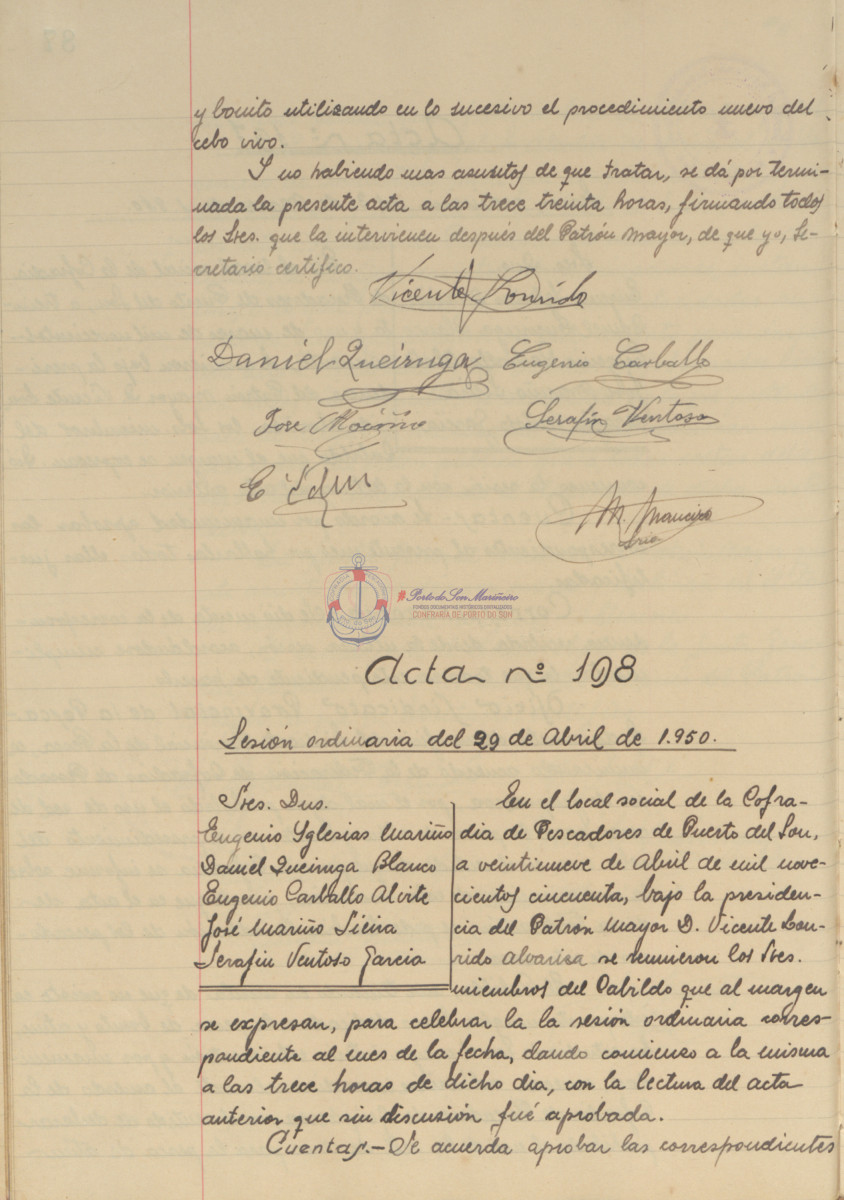 y bonito utilizando en lo sucesivo el procedimiento nuevo del
cebo vivo.
Y no habiendo mas asuntos de que tratar, se dá por termi-
nada la presente acta a las trece treinta horas, firmando todos
los Sres. que la intervienen después del Patrón mayor, de que yo, Se-
cretario certifico.
Vicente Lourido
Daniel Queiruga Eugenio Carballo
Jose Mariño Serafin Ventoso
E
M.
Srio
#PortodoSonMariñeiro
FONDOS DOCUMENTAIS HISTÓRICOS DIXITALIZADOS
CONFRARÍA DE PORTO DO SON
Acta nº 198
Sesión ordinaria del 29 de Abril de 1.950.
Sres. Dns.
Eugenio Yglesias Mariño
Daniel Queiruga Blanco
Eugenio Carballo Alvite
José Mariño Sieira
Serafin Ventoso Garcia
En el local social de la Cofra-
dia de Pescadores de Puerto del Son,
a veintinueve de Abril de mil nove-
cientos cincuenta, bajo la presiden-
cia del Patrón Mayor D. Vicente Lou-
rido Alvariza se reunieron los Sres.
miembros del Cabildo que al margen
se expresan, para celebrar la la sesión ordinaria corres-
pondiente al mes de la fecha, dando comienzo a la misma
a las trece horas de dicho dia, con la lectura del acta
anterior que sin discusión fué aprobada.
Cuentas.- Se acuerda aprobar las correspondientes